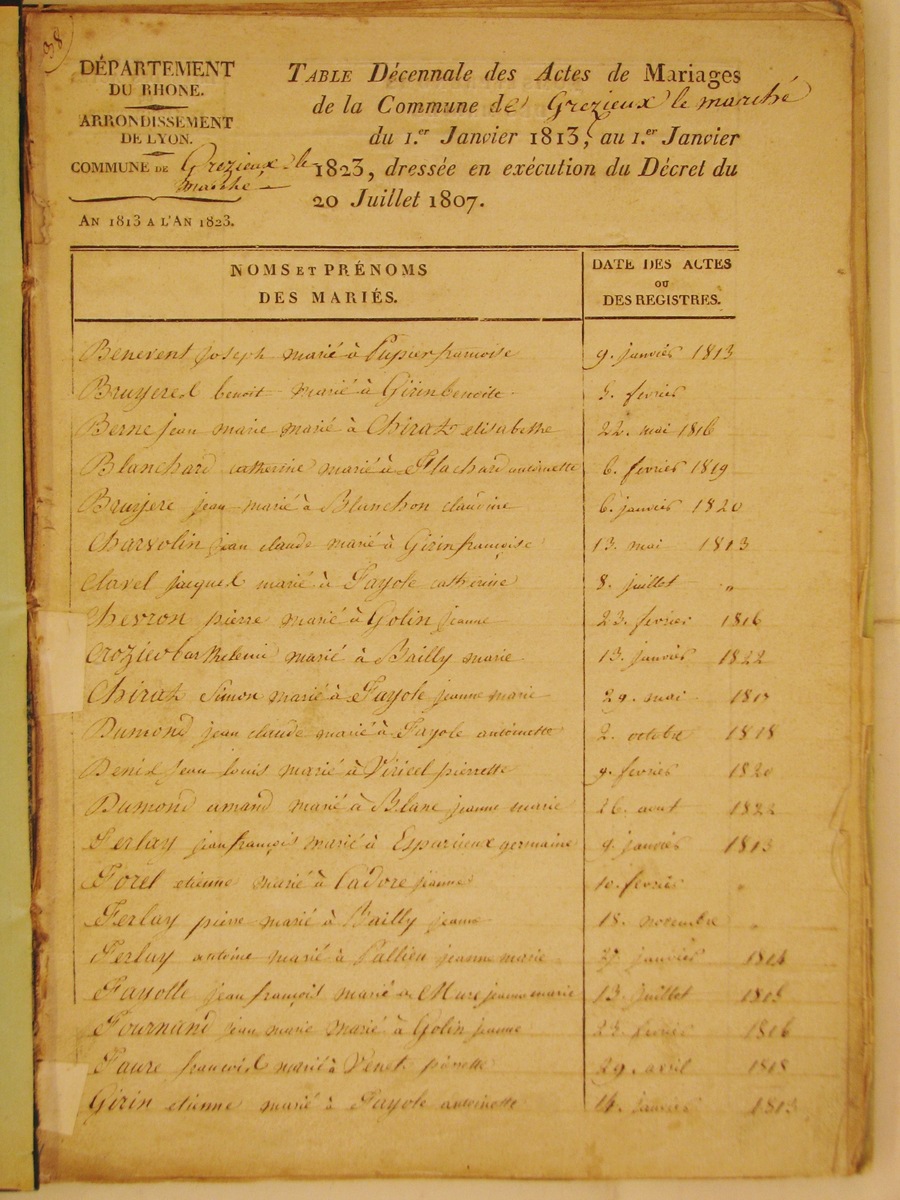 98
DÉPARTEMENT
DU RHONE.
ARRONDISSEMENT
DE LYON.
COMMUNE DE Grezieux-le
marché
AN 1813 A L'AN 1823.
TABLE Décennale des Actes de Mariages
de la Commune de Grezieux le marché
du 1.er Janvier 1813, au 1.er Janvier
1823, dressée en exécution du Décret du
20 Juillet 1807.
NOMS ET PRÉNOMS
DES MARIÉS.
DATE DES ACTES
OU
DES REGISTRES.
Benevent joseph marié à Pupier françoise 9. janvier 1813
Bruyeres benoit marié à Girin benoite 5. fevrier
Berne jean marie marié à Chirat elisabethe 22. mai 1816
Blanchard catherine marié à antoinette 6. fevrier 1819
Bruyere jean marié à Blanchon claudine 6. janvier 1820
Charvolin jean claude marié à Girin françoise 13. mai 1813
Clavel jacques marié à Fayole catherine 8. juillet "
Chevron pierre marié à Golin jeanne 23. fevrier 1816
Crozier barthelemi marié à Bailly marie 13. janvier 1822
Chirat Simon marié à Fayole jeanne marie 29. mai
Dumond jean claude marié à Fayole antoinette 2. octobre 1818
Denis jean louis marié à Viricel pierrette 9. fevrier 1820
Dumond amand marié à Blanc jeanne marie 26. aout 1822
Ferlay jean françois marié à Esparcieux germaine 9. janvier 1813
Forel etienne marié à Cadore jeanne 10. fevrier "
Ferlay pierre marié à Bailly jeanne 18. novembre "
Ferlay antoine marié à Pallieu jeanne marie janvier 1814
Fayolle jean françois marié à Mure jeanne marie 13. juillet 1815
Fournand jean marie marié à Golin jeanne fevrier 1816
Faure françois marié à Venet pierrette 29. avril 1818
Girin etienne marié à Fayole antoinette 14. janvier 1813